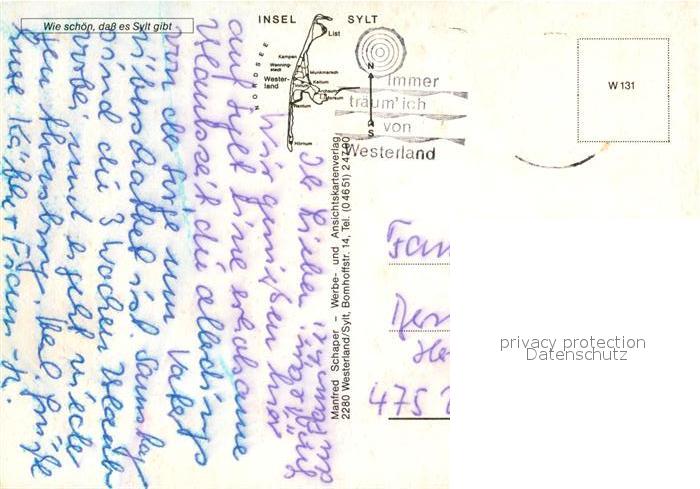 Wie schön, daß es Sylt gibt
INSEL SYLT
NORDSEE
List
Kampen
Wenning-
stedt
Munkmarsch
Wester-
land
Keitum
Tinnum
Archsum
Morsum
Rantum
Hörnum
N
S
Immer
träum' ich
von
Westerland
W 131
Manfred Schaper – Werbe- und Ansichtskartenverlag
2280 Westerland/Sylt, Bomhoffstr. 14, Tel. (04651) 24790
Ihr Lieben
Wir genießen hier
auf Sylt eine erholsame
Urlaubszeit die allerdings
von der Sorge um Vater
überschattet ist. Samstag
sind die 3 Wochen Urlaub
vorbei und es geht wieder
gen Ahrensburg. Herzl. Grüße
Fam
475
privacy protection
Datenschutz